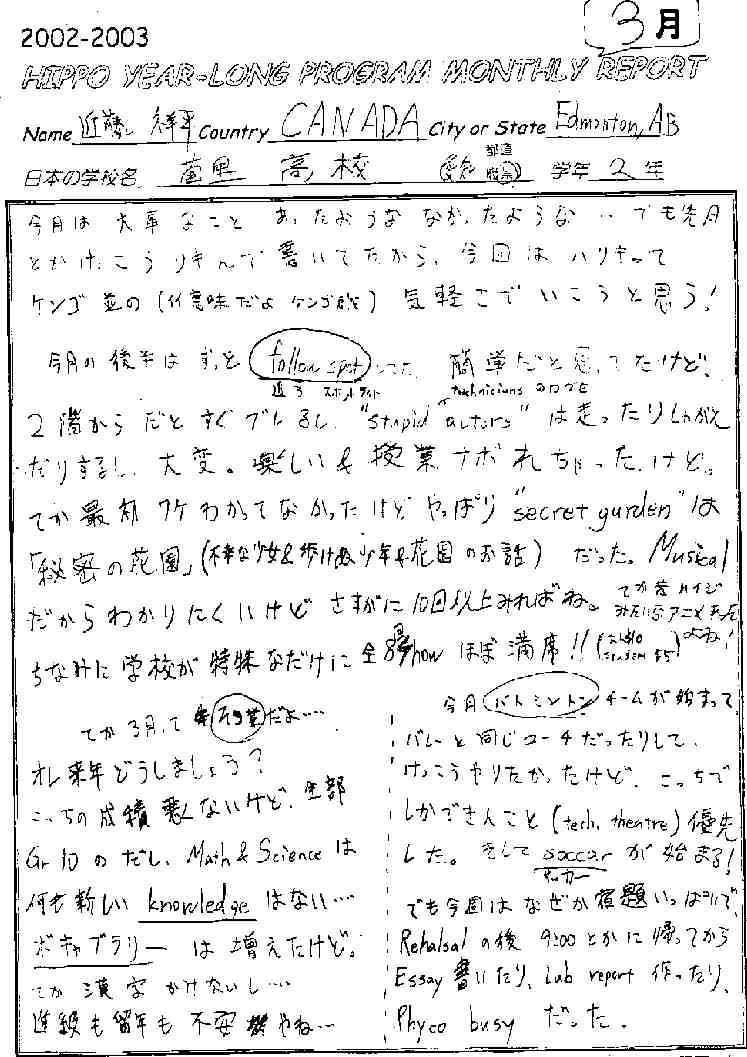 3月
2002-2003
HIPPO YEAR-LONG PROGRAM MONTHLY REPORT
Name 近藤 祥平 Country CANADA City or State Edmonton, AB
日本の学校名 高校 愛知 都道府県 学年 2年
今月は大事なことあったようななかったような… でも先月
とかけっこうりきんで書いてたから、今回はハリきって
ケンゴ並の(イミ意味だよ ケンゴ殿) 気軽こでいこうと思う!
今月の後半はずっと follow spot してた 簡単だと思ってたけど、
追う スポットライト
technicians のログセ
2階からだとすぐブレるし、"stupid actors" は走ったりしゃがん
だりするし、大変。楽しい&授業サボれちゃったけど。
てか最初ワケわかってなかったけどやっぱり "secret garden" は
「秘密の花園」(不幸な少女&歩けぬ少年&花園のお話) だった。Musical
だからわかりにくいけどさすがに10回以上みればね。
てか昔ハイジみたいなアニメあったよね!
ちなみに学校が特殊なだけに全8show ほぼ満席!!
てか3月って 卒業だよ…
オレ来年どうしましょう?
こっちの成績悪くないけど、全部
Gr 10 のだし、Math & Science は
何も新しい knowledge はない…
ボキャブラリー は増えたけど。
てか漢字かけないし…
進級も留年も不安やね…
今月 バトミントン チームが始まって、
バレーと同じコーチだったりして、
けっこうやりたかったけど、こっちで
しかできんこと (tech. theatre) 優先
した。そして soccer が始まる!
サッカー
でも今回はなぜか宿題いっぱいで、
Rehalsal の後 9:00 とかに帰ってから
Essay 書いたり、Lab report 作ったり、
Phyco busy だった。